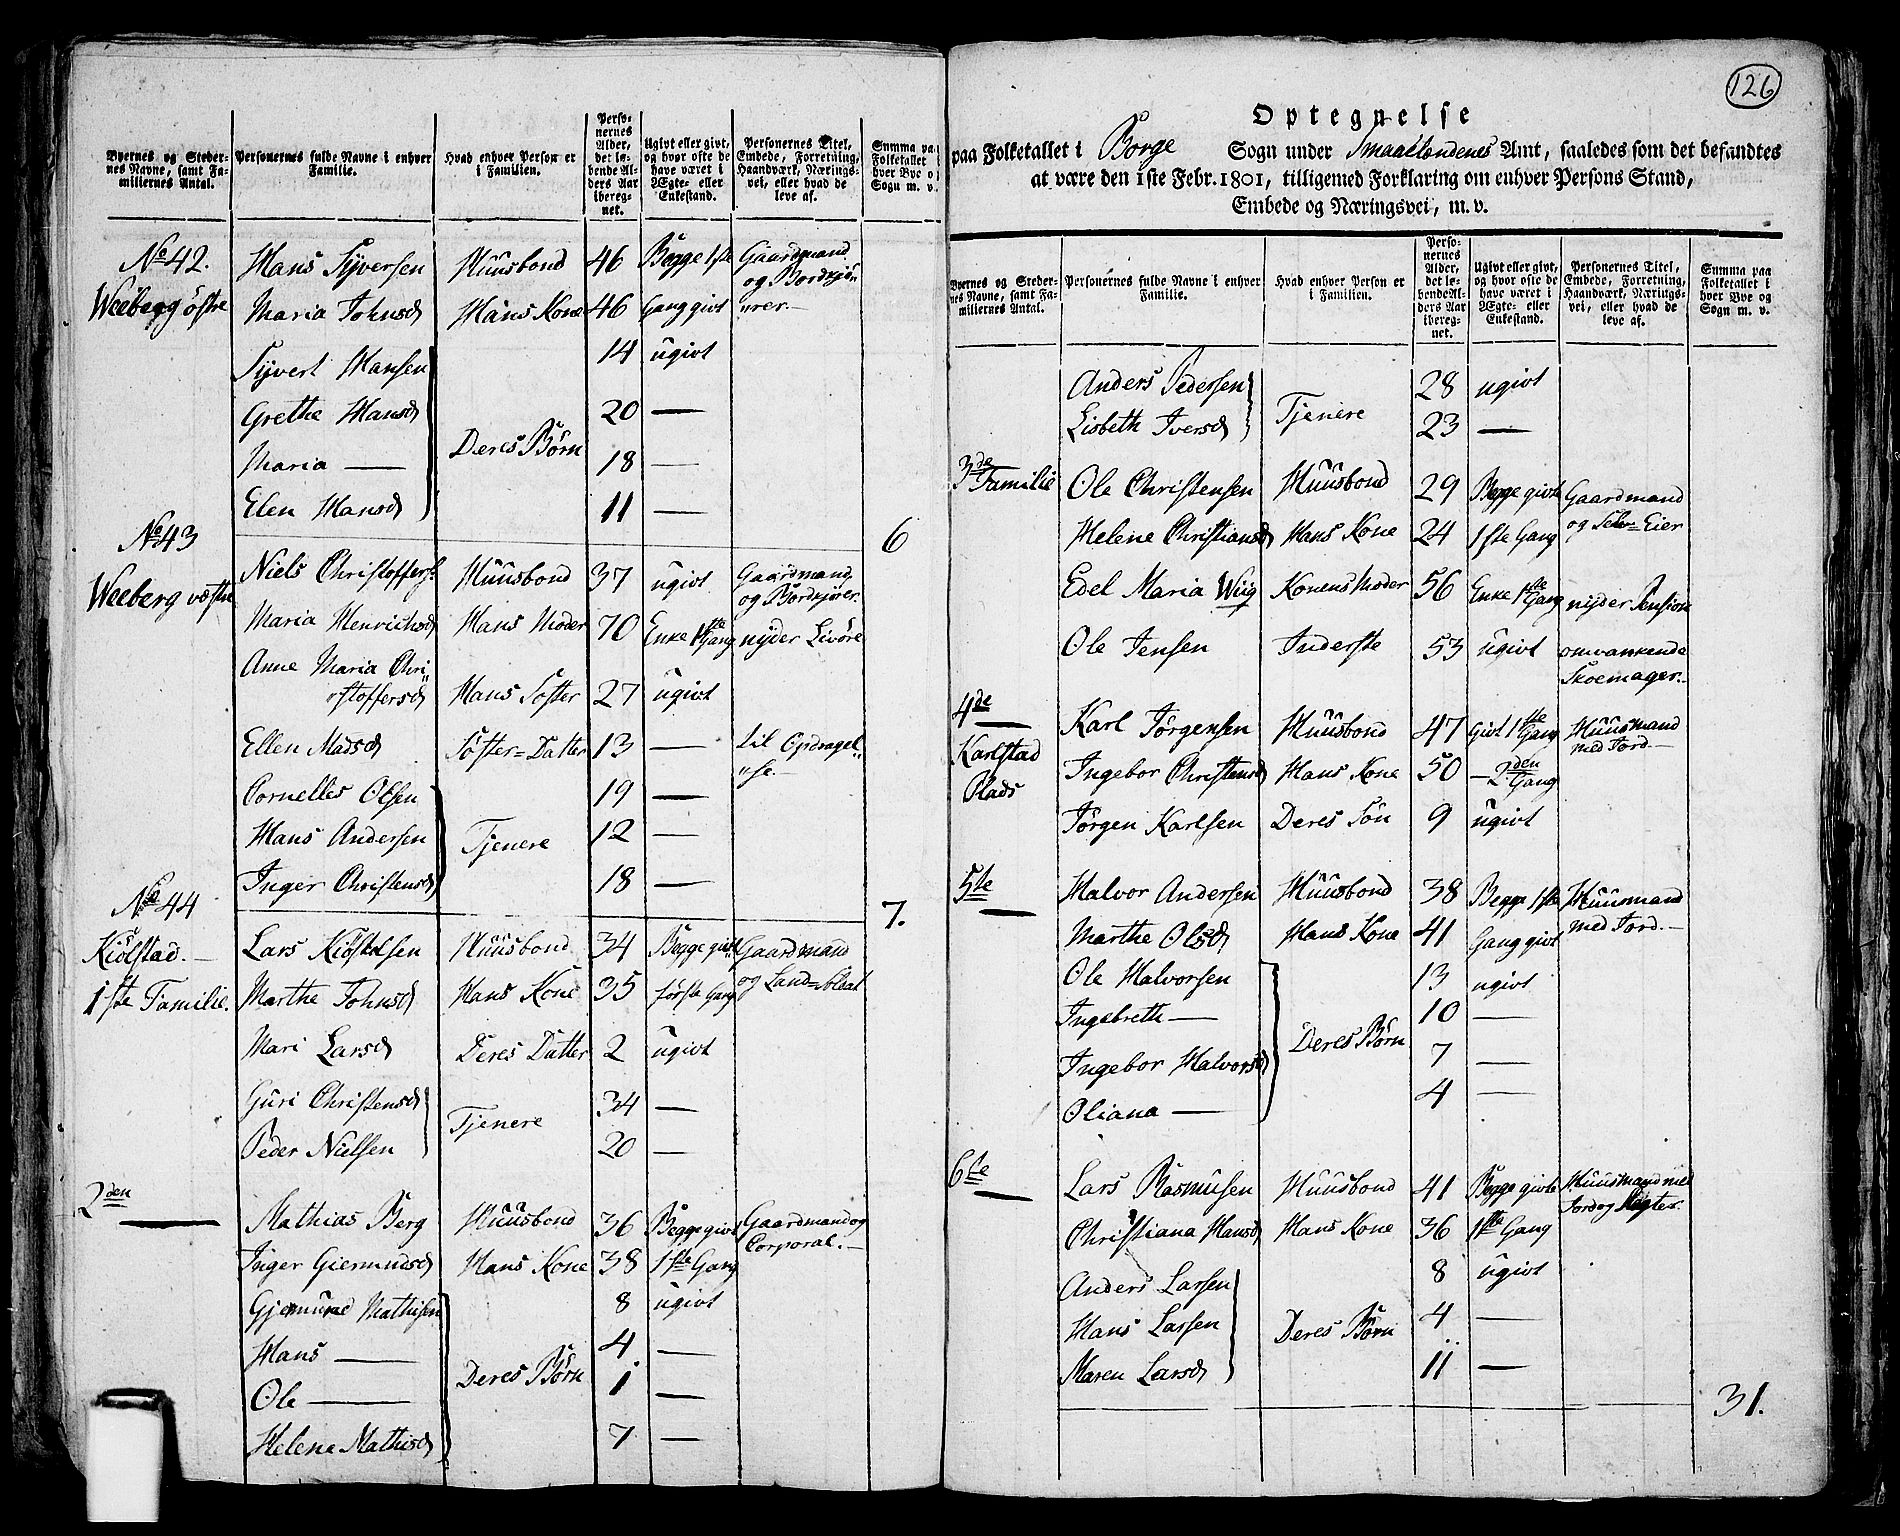 Byernes og Steder-
nes Navne, samt Fa-
miliernes Antal.
Personernes fulde Navne i enhver
Familie.
Hvad enhver Person er
i Familien.
Perso-
nernes
Alder,
det le-
bende Al-
ders Aar
ibereg-
net.
Ugivt eller givt,
og hvor ofte de
have været i
Ægte- eller
Enkestand.
Personernes Titel,
Embede, Forretning,
Haandværk, Nærings-
vei, eller hvad de
leve af.
Summa paa
Folketallet i
hver Bye o
Sogn m. v.
No 42. Hans Syversen Huusbond 46 Begge 1ste Gaardmand
og Bordkjö-
Weeberg östre Maria Johnsd Hans Kone 46 Gang givt "rer.-
Syvert Hansen 14 ugivt
Grethe Hansd 20 —
Deres Børn
Maria — 18 —
Elen Hansd 11 —
No 43 6
Niels Christoffers: Huusbond 37 ugivt Gaardmand
Weeberg væstre og Bordkjörer.
Maria Henrichsd Hans Moder 70 Enke 1ste Gang nyder Livöre
Anne Maria Chri"
"stoffersd Hans Søster 27 ugivt
Ellen Madsd Søster=Datter 13 — til Opdragel"
"se.-
Cornelles Olsen 19 —
Hans Andersen Tjenere 12 —
Inger Christensd 18 —
No 44 7.
Kiölstad.- Lars Kiöstelsen Huusbond 34 Begge givt Gaardmand
1ste Familie. Marthe Johnsd Hans Kone 35 første Gang og Land=
Mari Larsd Deres Datter 2 ugivt
Guri Christensd 34 —
Tjenere
Peder Nielsen 20 —
2den
Mathias Berg Huusbond 36 Begge givt Gaardmand og
Corporal.-
Inger Giermundsd Hans Kone 38 1ste Gang
Gjermund Mathisen 8 ugivt
Hans — 4 —
Deres Børn
Ole — 1 —
Helene Mathisd 7 —
126
Optegnelse
paa Folketallet i Borge Sogn under Smaaelændenes Amt, saaledes som det befandtes
at være den 1ste Febr. 1801, tilligemed Forklaring om enhver Persons Stand,
Embede og Næringsvei, m. v.
Byernes og Steder-
nes Navne, samt Fa-
miliernes Antal.
Personernes fulde Navne i enhver
Familie.
Hvad enhver Person er
i Familien.
Perso-
nernes
Alder,
det le-
bende Al-
ders Aar
ibereg-
net.
Ugivt eller givt,
og hvor ofte de
have været i
Ægte- eller
Enkestand.
Personernes Titel,
Embede, Forretning,
Haandværk, Nærings-
vei, eller hvad de
leve af.
Summa paa
Folketallet i
hver Bye og
Sogn m. v.
Anders Pedersen 28 ugivt
Tjenere
Lisbeth Iversd 23 —
3de Familie Ole Christensen Huusbond 29 Begge givte Gaardmand
Helene Christiansd Hans Kone 24 1ste Gang og Selv=Eier
Edel Maria Wiig Konens Moder 56 Enke 1ste Gang nyder Pension
Ole Jensen Inderste 53 ugivt omvankende
Skoemager.-
4de Karl Jørgensen Huusbond 47 Givt 1ste Gang Huusmand
med Jord.-
Karlstad Ingebor Christensd Hans Kone 50 — 2den Gang
Plads
Jørgen Karlsen Deres Søn 9 ugivt
5te Halvor Andersen Huusbond 38 Begge 1ste Huusmand
Marthe Olsd Hans Kone 41 Gang givt med Jord.-
Ole Halvorsen 13 ugivt
Ingebreth — 10 —
Deres Børn
Ingebor Halvorsd 7 —
Oliana — 4 —
6te Lars Rasmusen Huusbond 41 Begge givte Huusmand med
Jord og Røgter.
Christiana Hansd Hans Kone 36 1ste Gang
Anders Larsen 8 ugivt
Hans Larsen Deres Børn 4 —
Maren Larsd 11 —
31.